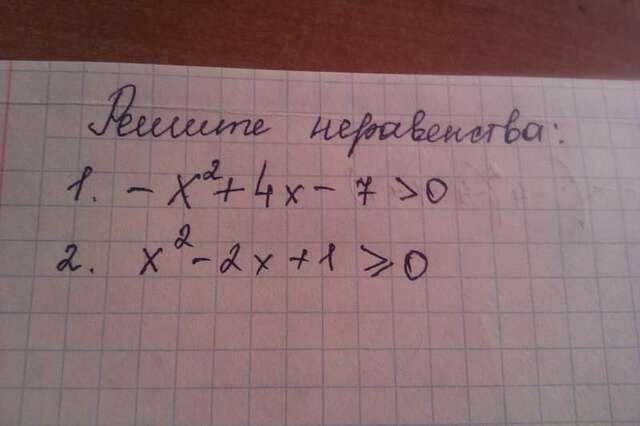 Решите неравенства:
1. -x²+4x-7>0
2. x²-2x+1⩾0